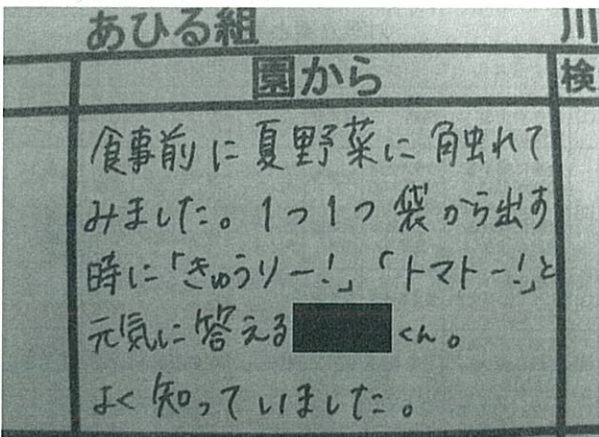 あひる組
川
園から
検
食事前に夏野菜に触れて
みました。1つ1つ袋から出す
時に「きゅうりー!」「トマトー!」と
元気に答える くん。
よく知っていました。